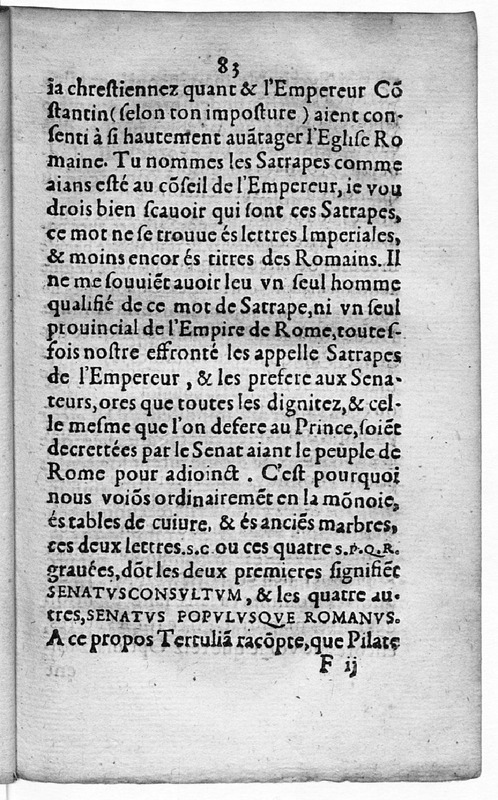 83
ia chrestiennez quant & l'Empereur Cõ
stantin (selon ton imposture) aient con-
senti à si hautement auãtager l'Eglise Ro
maine. Tu nommes les Satrapes comme
aians esté au cõseil de l'Empereur, ie vou
drois bien scauoir qui sont ces Satrapes,
ce mot ne se trouue és lettres Imperiales,
& moins encor és titres des Romains. Il
ne me souuiẽt auoir leu vn seul homme
qualifié de ce mot de Satrape, ni vn seul
prouincial de l'Empire de Rome, toutes-
fois nostre effronté les appelle Satrapes
de l'Empereur, & les prefere aux Sena-
teurs, ores que toutes les dignitez, & cel-
le mesme que l'on defere au Prince, soiẽt
decrettées par le Senat aiant le peuple de
Rome pour adioinct. C'est pourquoi
nous voiõs ordinairemẽt en la mõnoie,
és tables de cuiure, & és anciẽs marbres,
ces deux lettres.S.C. ou ces quatre S.P.Q.R.
grauées, dõt les deux premieres signifiẽt
SENATVSCONSVLTVM, & les quatre au-
tres, SENATVS POPVLVSQVE ROMANVS.
A ce propos Tertuliã racõpte, que Pilate
F ij